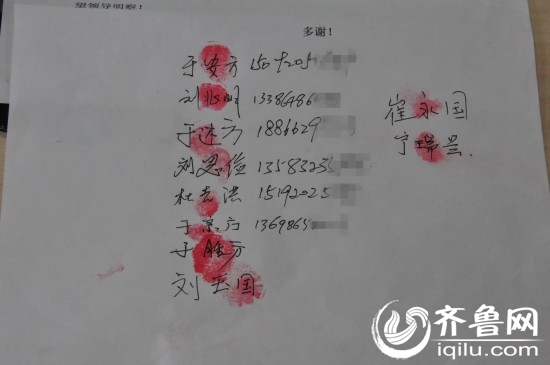 望领导明察！
多谢！
于安方 150
刘 明 1338486
于达方 1886629
刘恩俭 13583235
杜 洪 15192025
于京方 1369865
于胜方
刘玉国
崔永国
宁瑞昙
齐鲁网
iqilu.com